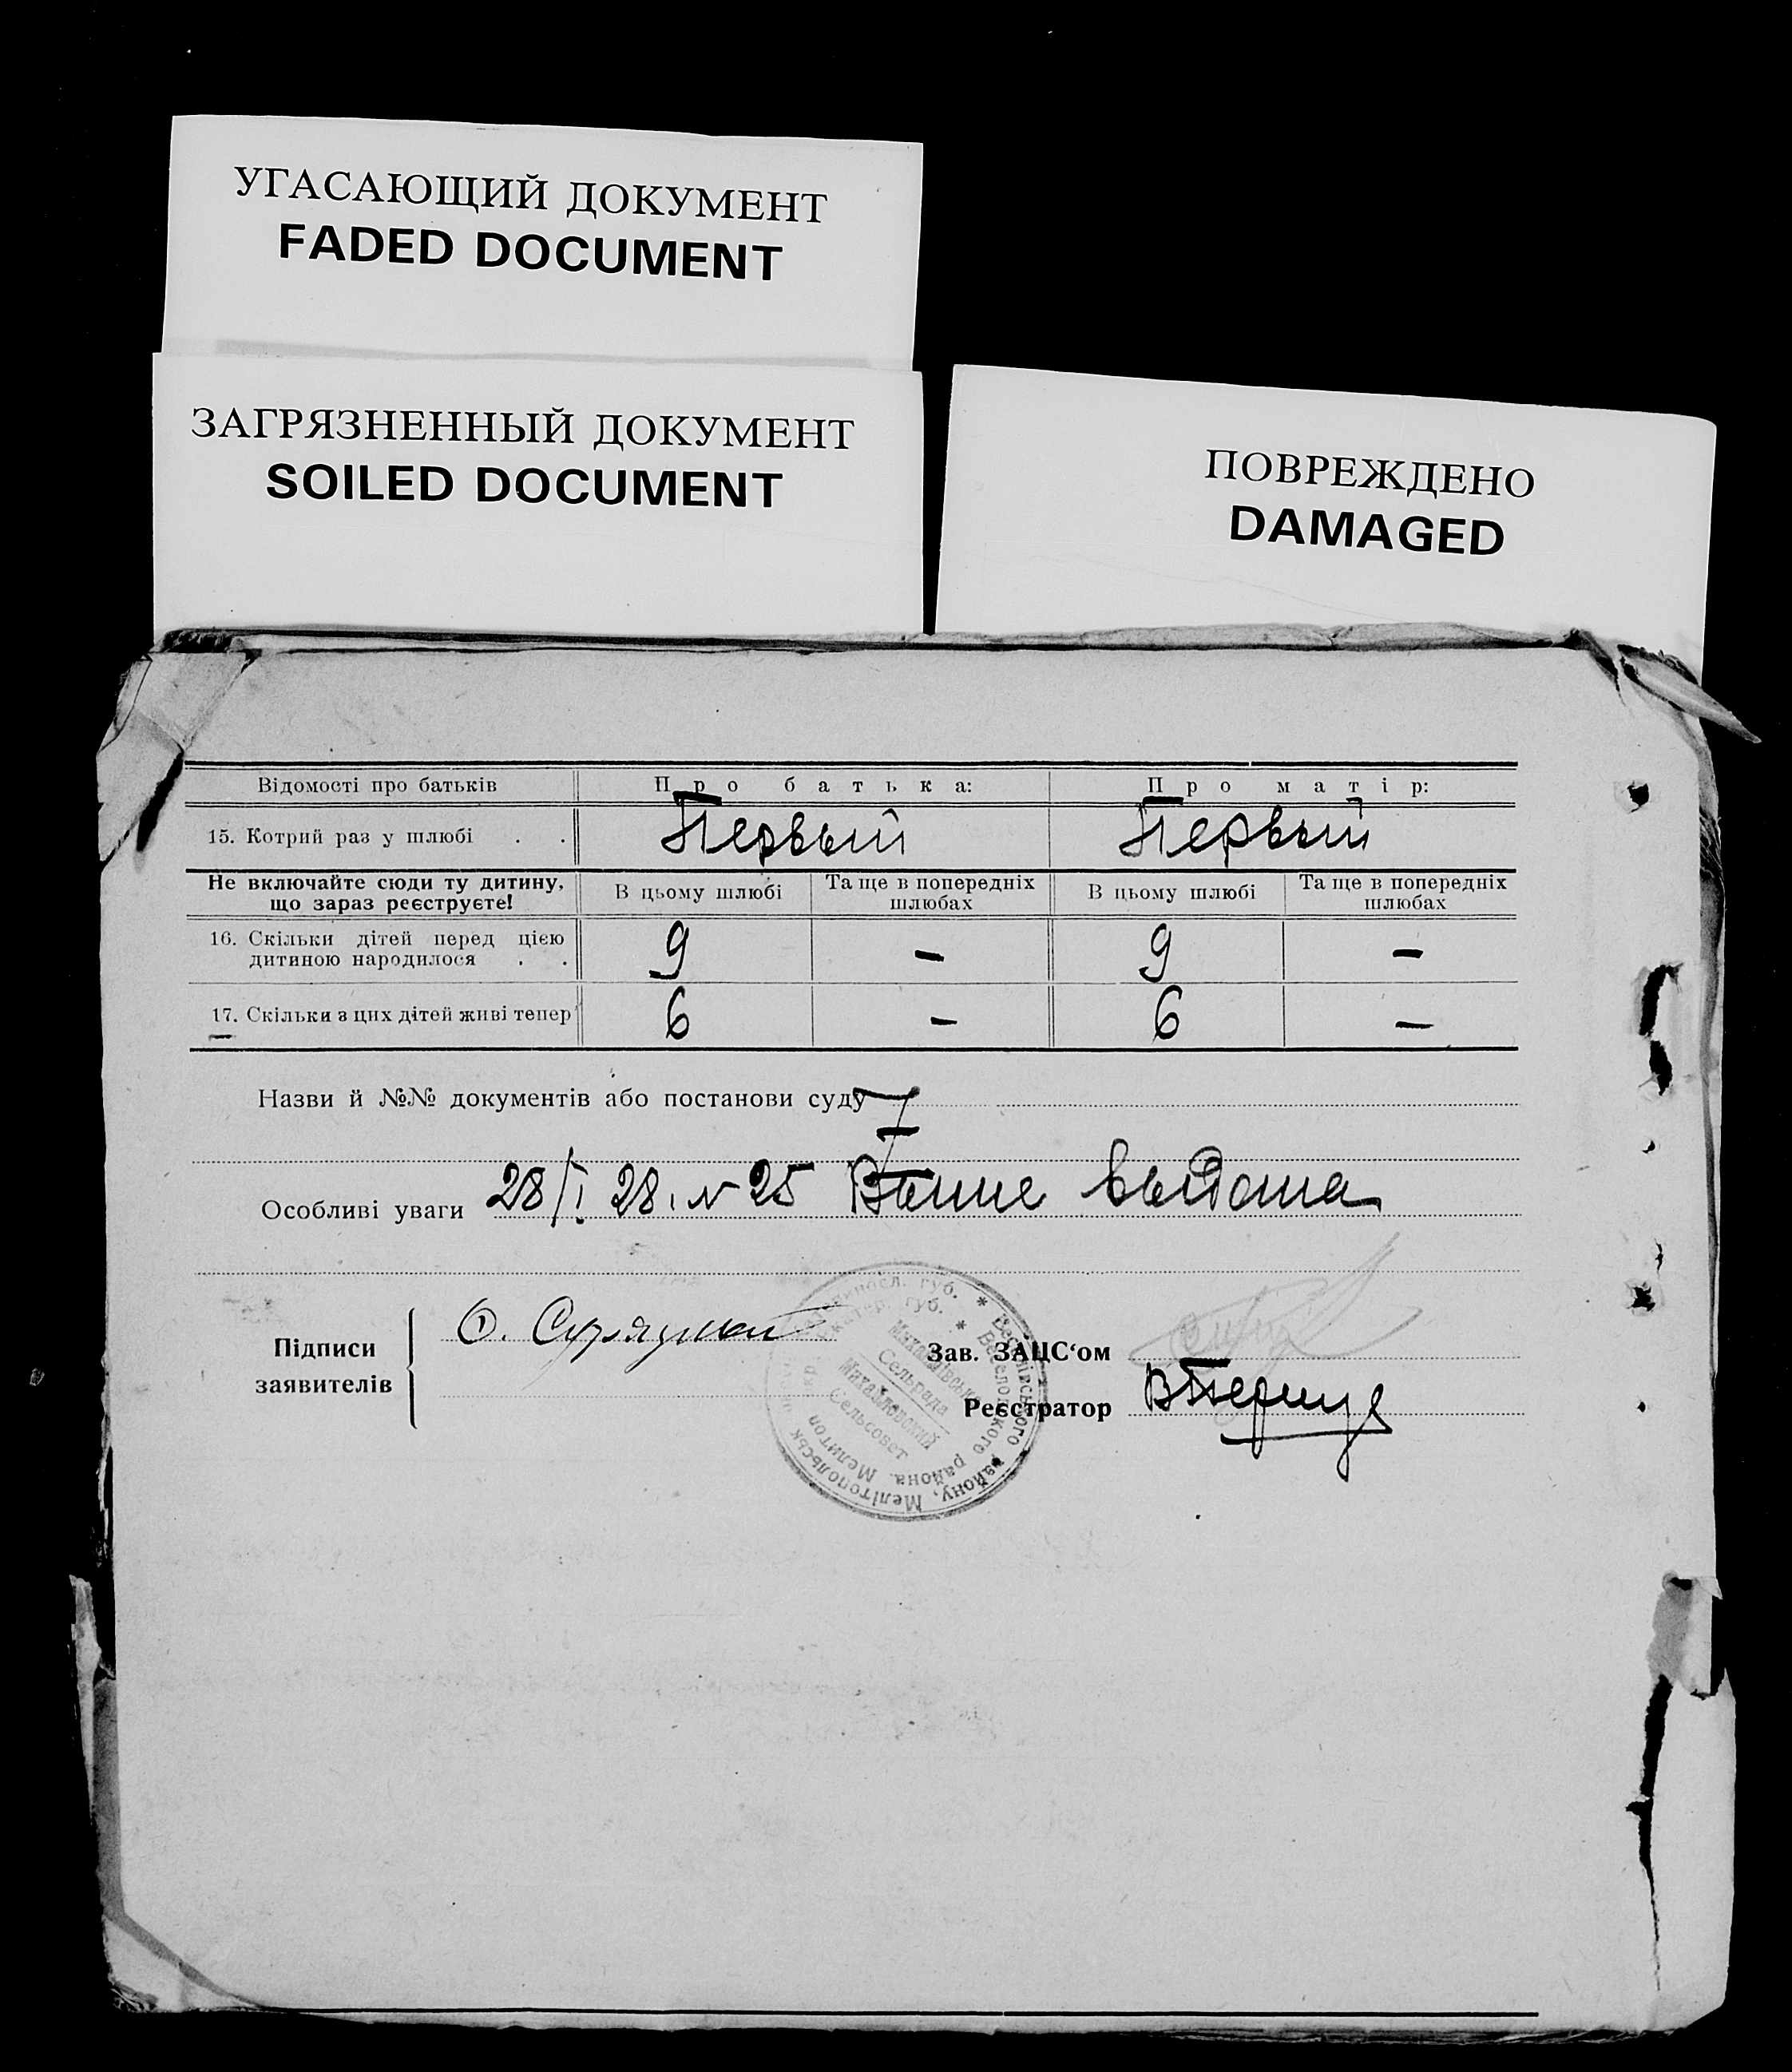 УГАСАЮЩИЙ ДОКУМЕНТ
FADED DOCUMENT
ЗАГРЯЗНЕННЫЙ ДОКУМЕНТ
SOILED DOCUMENT
ПОВРЕЖДЕНО
DAMAGED
Відомості про батьків Про батька: Про матір:
15. Котрий раз у шлюбі . . Первый Первый
Не включайте сюди ту дитину, що зараз реєструєте! В цьому шлюбі Та ще в попередніх шлюбах В цьому шлюбі Та ще в попередніх шлюбах
16. Скільки дітей перед цією дитиною народилося . . 9 – 9 –
17. Скільки з цих дітей живі тепер 6 – 6 –
Назви й №№ документів або постанови суду
Особливі уваги 28/I 28. № 25
Підписи заявителів
Зав. ЗАЦС‘ом
Реєстратор
Михайлівська
Сельрада
Михайловский
Сельсовет